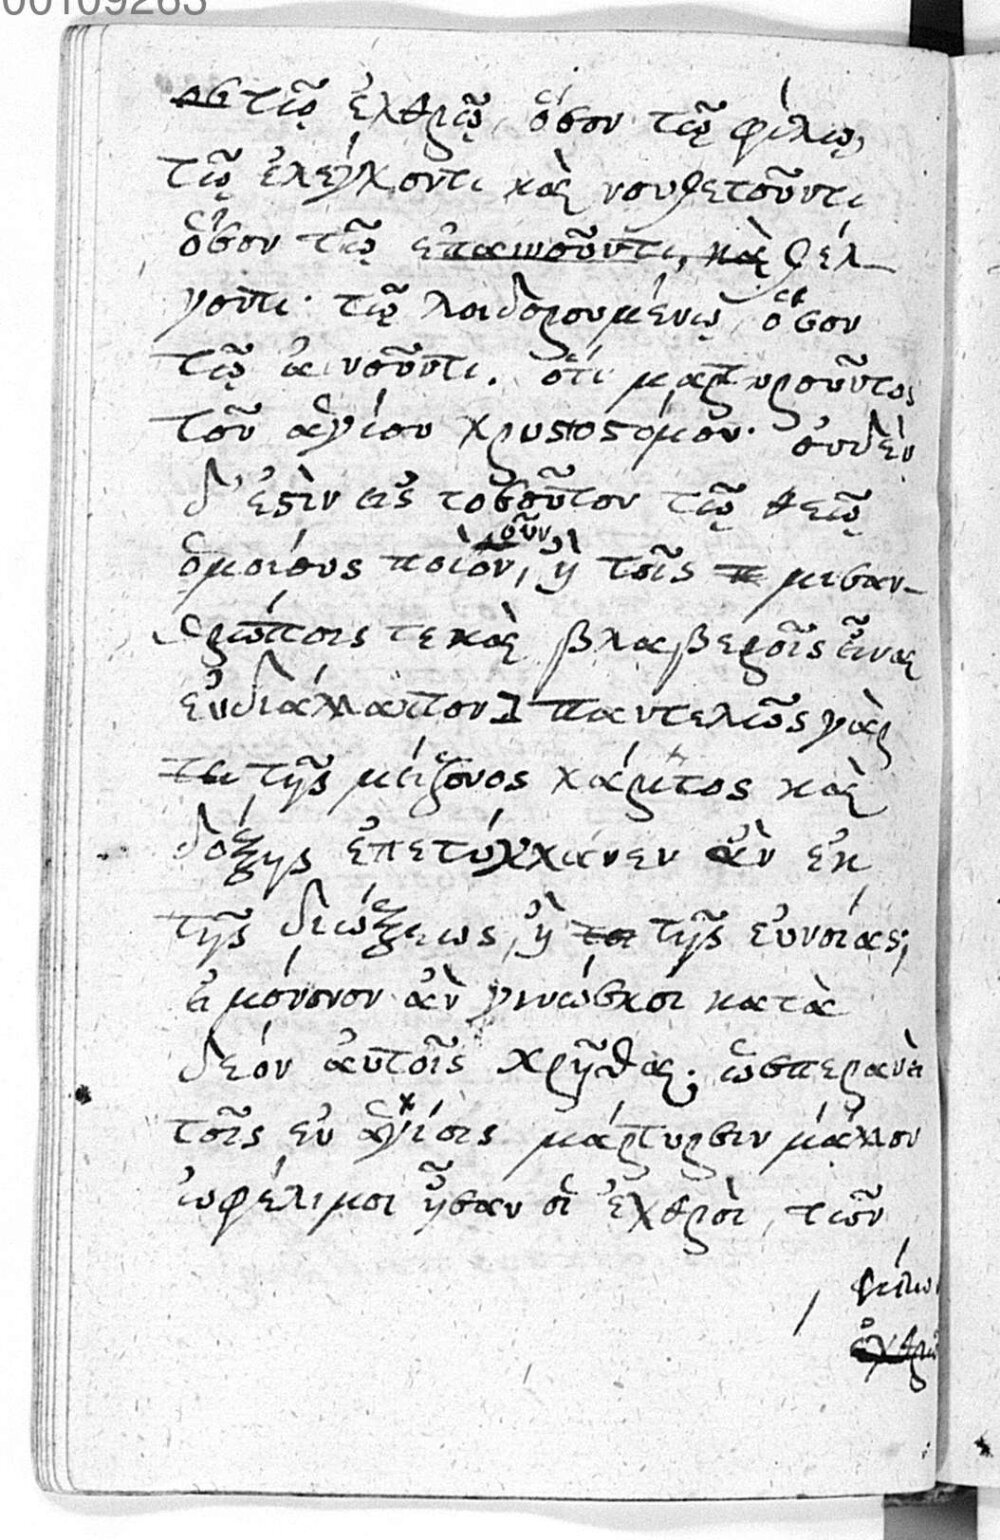 00109263
τῷ ἐχθρῷ, ὅσον τῷ φίλῳ,
τῷ ἐλέγχοντι καὶ νουθετοῦντι
ὅσον τῷ ἐπαινοῦντι, καὶ θέλ-
γοντι· τῷ λοιδορουμένῳ, ὅσον
τῷ αἰνοῦντι. ὅτι μαρτυροῦντος
τοῦ ἁγίου χρυσοστόμου· οὐδὲν
δ' ἐστὶν εἰς τοσοῦτον τῷ θεῷ
ὁμοίους ποιοῦν, ἢ τοῖς μισαν-
θρώποις τε καὶ βλαβεροῖς εἶναι
εὐδιάλλακτον παντελῶς γὰρ
τῆς μείζονος χάριτος καὶ
δόξης ἐπετύγχανεν ἂν ἐκ
τῆς διώξεως, ἢ τῆς εὐνοίας;
εἰ μόνον ἂν γινώσκοι κατὰ
δέον αὐτοῖς χρῆσθαι· ὥσπερ
τοῖς ἐν ἁγίοις μάρτυρσιν μᾶλλον
ὠφέλιμοι ἦσαν οἱ ἐχθροὶ, τῶν
φίλων